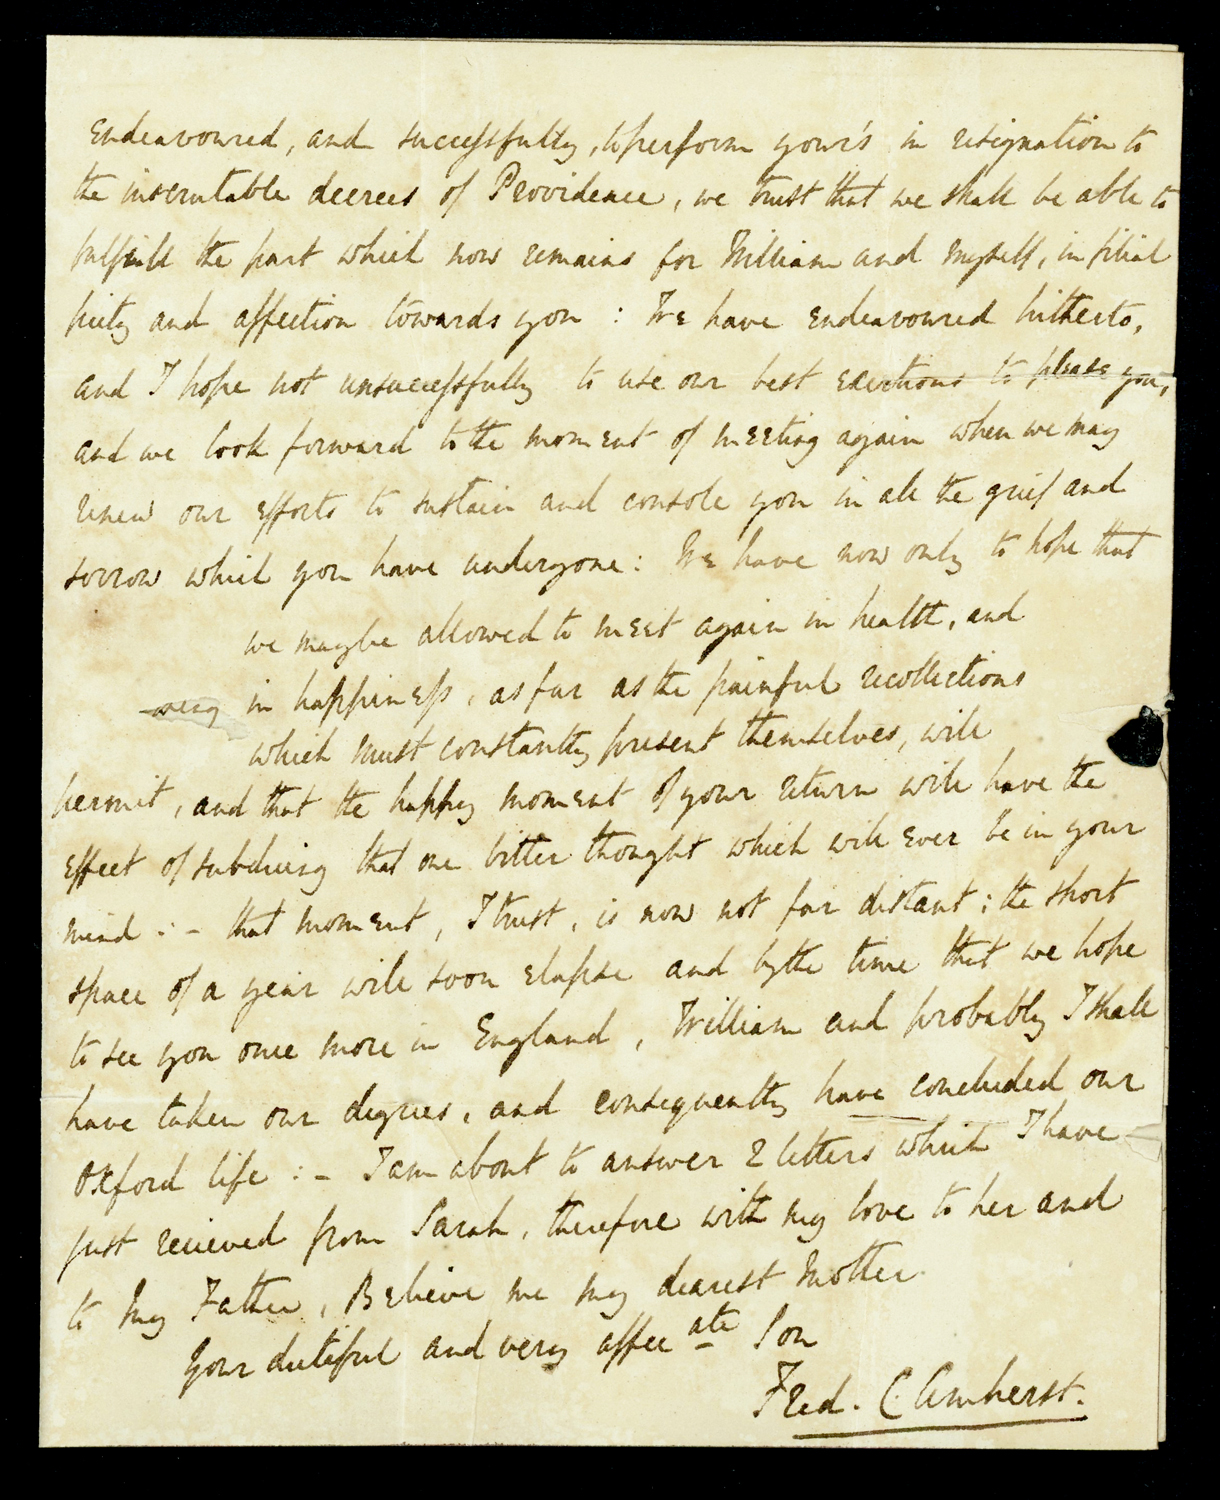 endeavoured, and successfully, to perform your's in resignation to
the inscrutable decrees of Providence, we trust that we shall be able to
fulfill the part which now remains for William and myself, in filial
piety and affection towards you : We have endeavoured hitherto,
and I hope not unsuccessfully to use our best exertions to please you,
and we look forward to the moment of meeting again when we may
renew our efforts to sustain and console you in all the grief and
sorrow which you have undergone : We have now only to hope that
we may be allowed to meet again in health, and
in happiness, as far as the painful recollections
which must constantly present themselves, will
permit, and that the happy moment of your return will have the
effect of subduing that one bitter thought which will ever be in your
mind : - that moment, I trust, is now not far distant ; the short
space of a year will soon elapse and by the time that we hope
to see you once more in England, William and probably I shall
have taken our degrees, and consequently have concluded our
Oxford life : - I am about to answer 2 letters which I have
just recieved from Sarah, therefore with my love to her and
to my Father, Believe me my dearest Mother
Your dutiful and very affecate Son
Fred. C. Amherst.